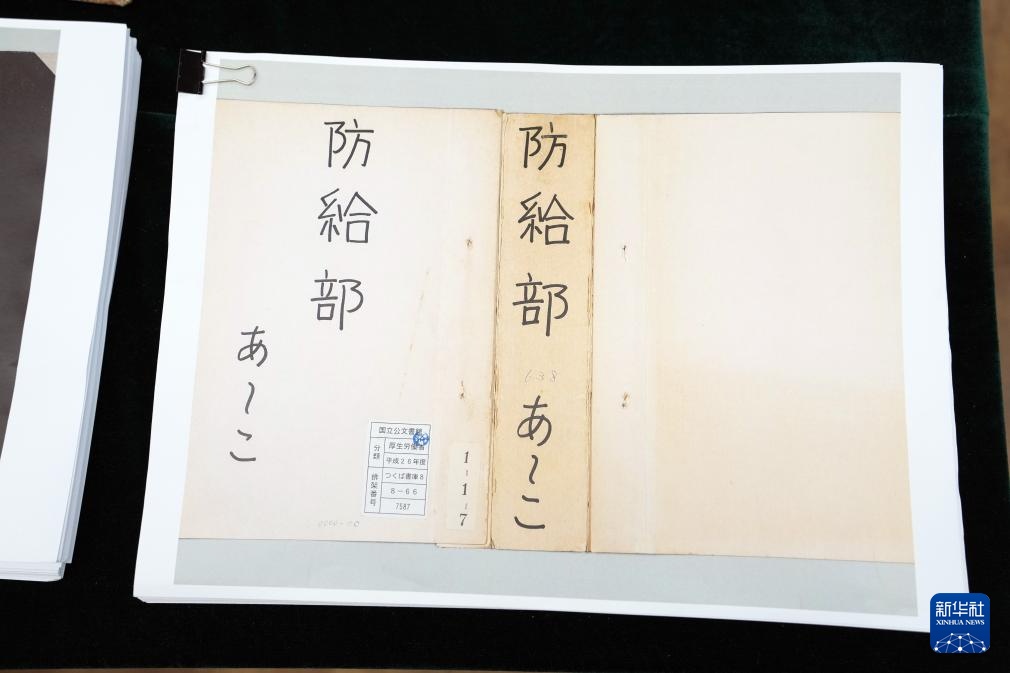 防給部
あ〜こ
国立公文書館
分類
厚生労働省
平成26年度
つくば書庫8
排架番号
8-66
7587
1-1-7
防給部
638
あ〜こ
新华社
XINHUA NEWS